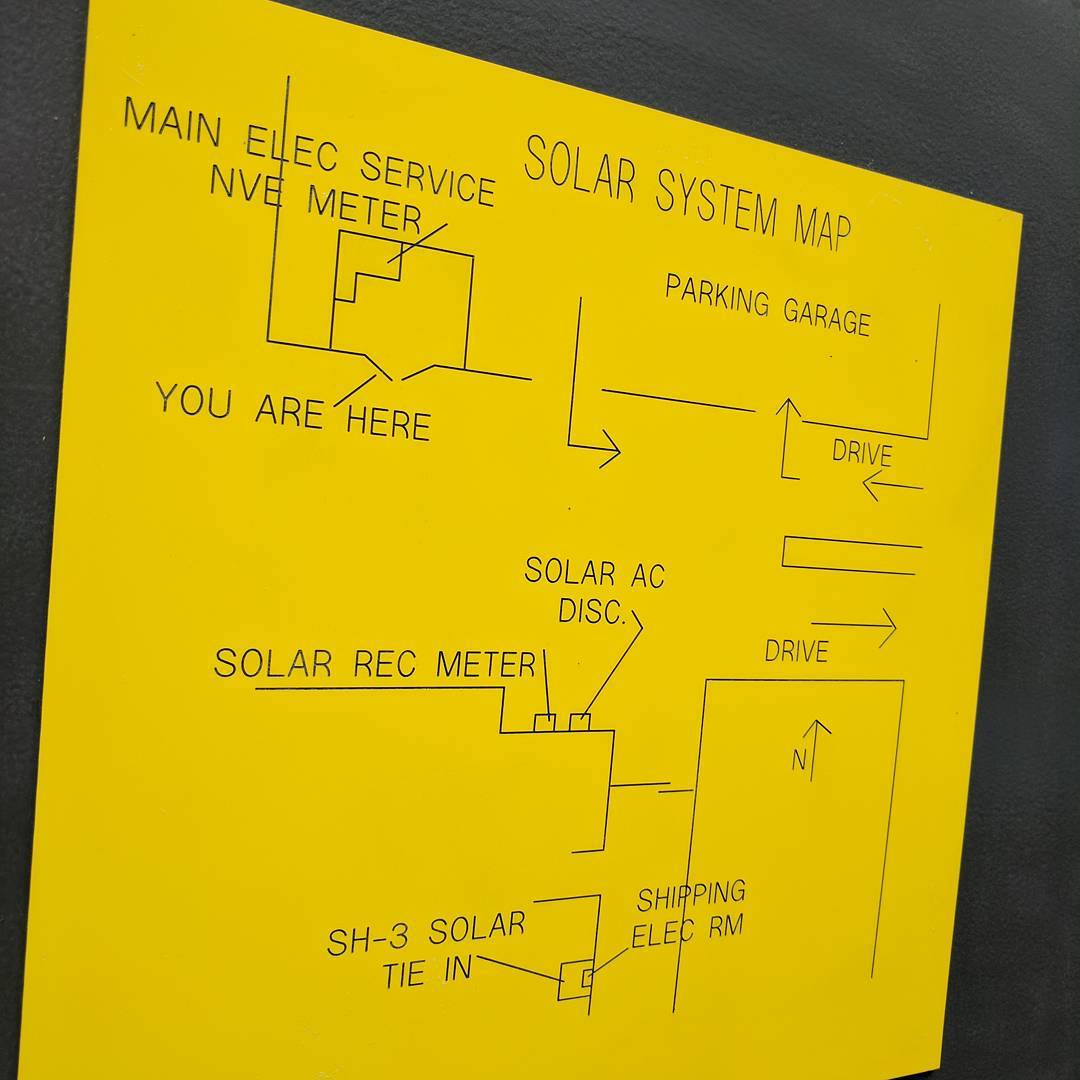 SOLAR SYSTEM MAP
MAIN ELEC SERVICE
NVE METER
PARKING GARAGE
YOU ARE HERE
DRIVE
SOLAR AC
DISC.
SOLAR REC METER
DRIVE
N
SHIPPING
ELEC RM
SH-3 SOLAR
TIE IN